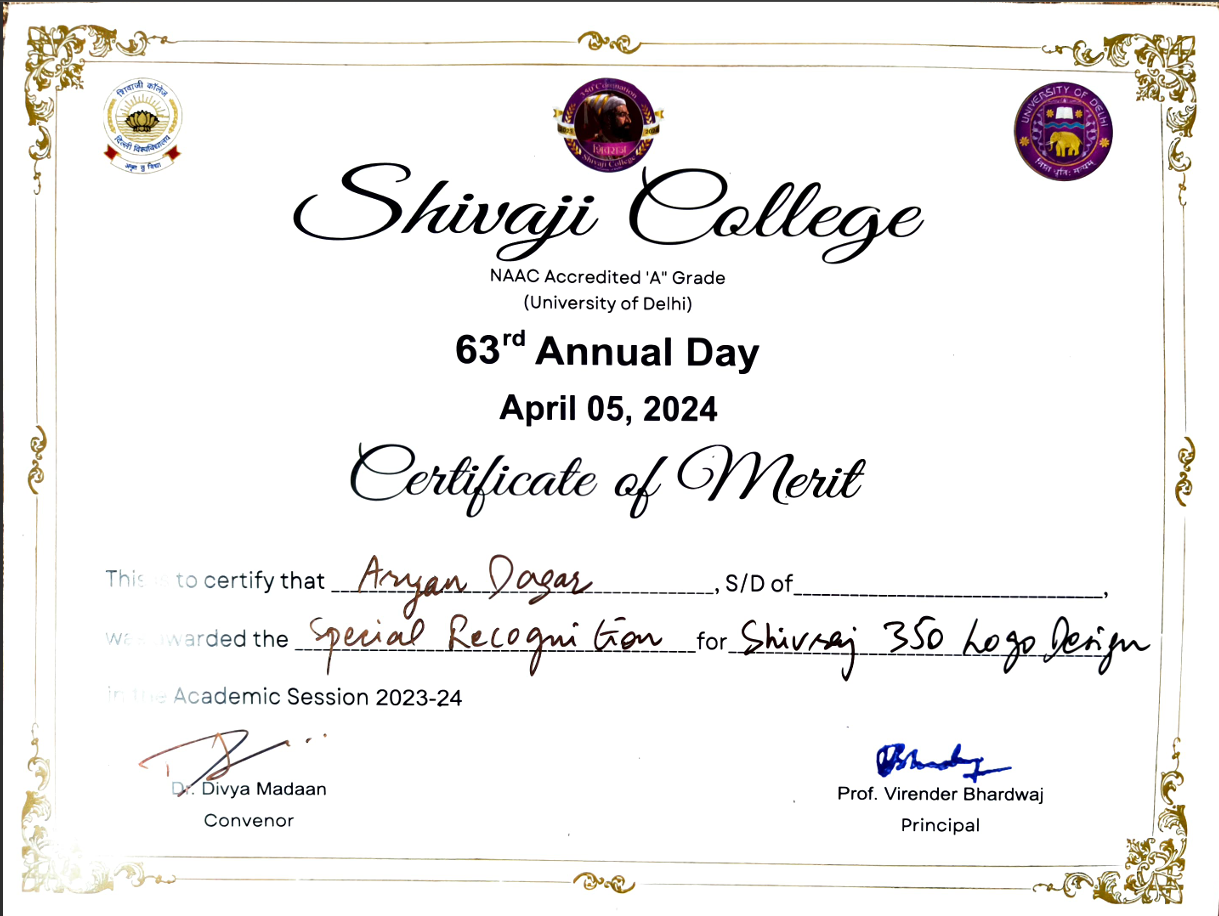 शिवाजी कॉलेज
दिल्ली विश्वविद्यालय
350 Coronation
शिवराज
Shivaji College
UNIVERSITY OF DELHI
Shivaji College
NAAC Accredited 'A" Grade
(University of Delhi)
63rd Annual Day
April 05, 2024
Certificate of Merit
This is to certify that Aryan Dagar, S/D of,
was awarded the Special Recognition for Shivraj 350 Logo Design
in the Academic Session 2023-24
Dr. Divya Madaan
Convenor
Prof. Virender Bhardwaj
Principal